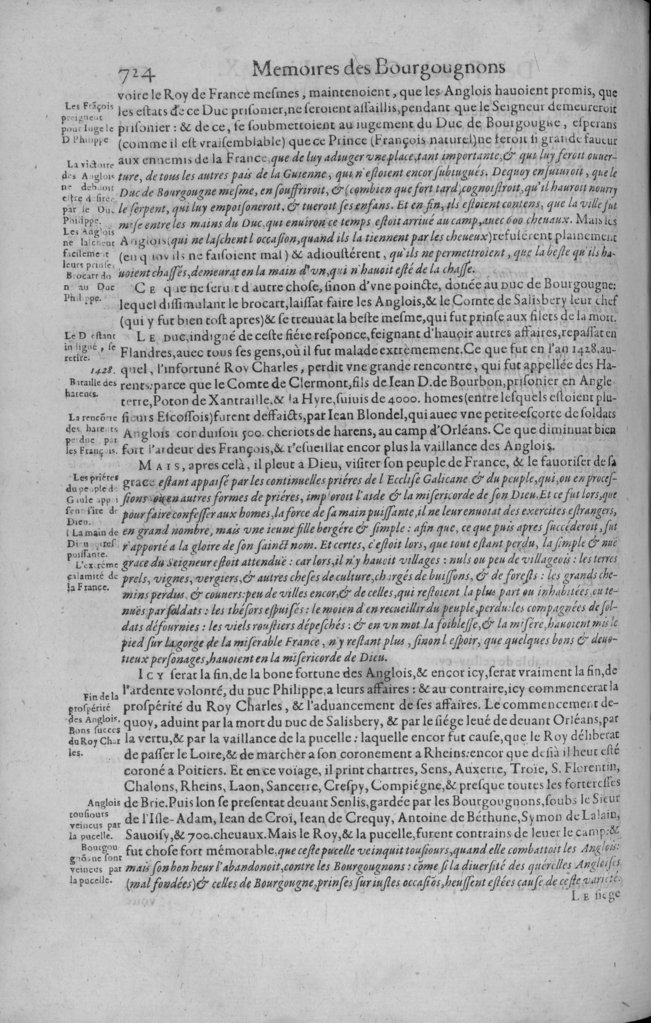 724 Memoires des Bourgougnons
voire le Roy de France mesmes, maintenoient, que les Anglois hauoient promis, que
les estats de ce Duc prisonier, ne seroient assaillis, pendant que le Seigneur demeureroit
prisonier : & de ce, se soubmettoient au iugement du Duc de Bourgougne, esperans
(comme il est vraisemblable) que ce Prince (François naturel) ne feroit si grande faueur
aux ennemis de la France, que de luy adiuger vne place, tant importante, & qui luy feroit ouuer-
ture, de tous les autres païs de la Guienne, qui n'estoient encor subiugués. Dequoy en futuroit, que le
Duc de Bourgougne mesme, en souffriroit, & (combien que fort tard, cognoistroit, qu'il hauroit nourry
le serpent, qui luy empoisoneroit, & tueroit ses enfans. Et en fin, ils estoient contens, que la ville fut
mise entre les mains du Duc, qui enuiron ce temps estoit arriué au camp, auec 600 cheuaux. Mais les
Anglois (qui ne laschent l'occasion, quand ils la tiennent par les cheueux) refusérent plainement
(en quoy ils ne faisoient mal) & adioustérent, qu'ils ne permettroient, que la beste qu'ils ha-
uoient chassés, demeurat en la main d'vn, qui n'hauoit esté de la chasse.
CE que ne seruit d'autre chose, sinon d'vne poincte, donée au Duc de Bourgougne:
lequel dissimulant le brocart, laissat faire les Anglois, & le Comte de Salisbery leur chef
(qui y fut bien tost apres) & se treuuat la beste mesme, qui fut prinse aux filets de la mort.
LE Duc, indigné de ceste fiére responce, feignant d'hauoir autres affaires, repassat en
Flandres, auec tous ses gens, où il fut malade extrèmement. Ce que fut en l'an 1428. au-
quel, l'infortuné Roy Charles, perdit vne grande rencontre, qui fut appellée des Ha-
rens: parce que le Comte de Clermont, fils de Iean D. de Bourbon, prisonier en Angle-
terre, Poton de Xantraille, & la Hyre, suiuis de 4000. homes (entre lesquels estoient plu-
sieurs Escossois) furent deffaicts, par Iean Blondel, qui auec vne petite escorte de soldats
Anglois conduisoit 500. cheriots de harens, au camp d'Orléans. Ce que diminuat bien
fort l'ardeur des François, & r'esueillat encor plus la vaillance des Anglois.
MAIS, apres celà, il pleut a Dieu, visiter son peuple de France, & le fauoriser de sa
grace estant appaisé par les continuelles priéres de l'Ecclise Galicane & du peuple, qui, ou en proces-
sions ou en autres formes de priéres, imploroit l'aide & la misericorde de son Dieu. Et ce fut lors, que
pour faire confesser aux homes, la force de sa main puissante, il ne leur enuoiat des exercites estrangers,
en grand nombre, mais vne ieune fille bergére & simple : afin que, ce que puis apres succéderoit, fut
r'apporté a la gloire de son sainct nom. Et certes, c'estoit lors, que tout estant perdu, la simple & nuë
grace du Seigneur estoit attenduë : car lors, il n'y hauoit villages : nuls ou peu de villageois : les terres
prels, vignes, vergiers, & autres choses de culture, chargés de buissons, & de forests : les grands che-
mins perdus, & couuers: peu de villes encor, & de celles, qui restoient la plus part ou inhabitées, ou te-
nuës par soldats : les thésors espuisés : le moien d'en recueillir du peuple, perdu: les compagnées de sol-
dats défournies : les viels roustiers dépeschés : & en vn mot la foiblesse, & la misére, hauoient mis le
pied sur la gorge de la miserable France, n'y restant plus, sinon l'espoir, que quelques bons & deuo-
tieux personages, hauoient en la misericorde de Dieu.
ICY serat la fin, de la bone fortune des Anglois, & encor icy, serat vraiment la fin, de
l'ardente volonté, du Duc Philippe, a leurs affaires : & au contraire, icy commencerat la
prospérité du Roy Charles, & l'aduancement de ses affaires. Le commencement de-
quoy, aduint par la mort du Duc de Salisbery, & par le siége leué de deuant Orléans, par
la vertu, & par la vaillance de la pucelle : laquelle encor fut cause, que le Roy déliberat
de passer le Loire, & de marcher a son coronement a Rheins: encor que desià il heut esté
coroné a Poitiers. Et en ce voïage, il print chartres, Sens, Auxerre, Troie, S. Florentin,
Chalons, Rheins, Laon, Sancerre, Crespy, Compiégne, & presque toutes les forteresses
de Brie. Puis lon se presentat deuant Senlis, gardée par les Bourgougnons, soubs le Sieur
de l'Isle-Adam, Iean de Croï, Iean de Crequy, Antoine de Béthune, Symon de Lalain,
Sauoisy, & 700. cheuaux. Mais le Roy, & la pucelle, furent contrains de leuer le camp: &
fut chose fort mémorable, que ceste pucelle veinquit tousiours, quand elle combattoit les Anglois:
mais son bon heur l'abandonoit, contre les Bourgougnons : côme si la diuersité des quérelles Angloises
(mal fondées) & celles de Bourgougne, prinses sur iustes occasiõs, heussent estées cause de ceste varieté.
LE siége
Les Frãçois
preignent
pour Iuge le
D Philippe
La victoire
des Anglois
ne debuoit
estre désirée
par le Du.
Philippe.
Les Anglois
ne laschent
facilement
leurs prinses
Brocart don
n au Duc
Philippe.
Le D estant
indigné, se
retire.
1428.
Bataille des
harens.
La rencõtre
des harens
perdue par
les François.
Les priéres
du peuple de
Gaule appai
sent ire de
Dieu.
La main de
Dieu tres
puissante.
L'extrème
calamité de
la France.
Fin de la
prospérité
des Anglois.
Bons succes
du Roy Char
les.
Anglois
tousiours
veincus par
la pucelle.
Bourgou
gnõs ne sont
veincus par
la pucelle.